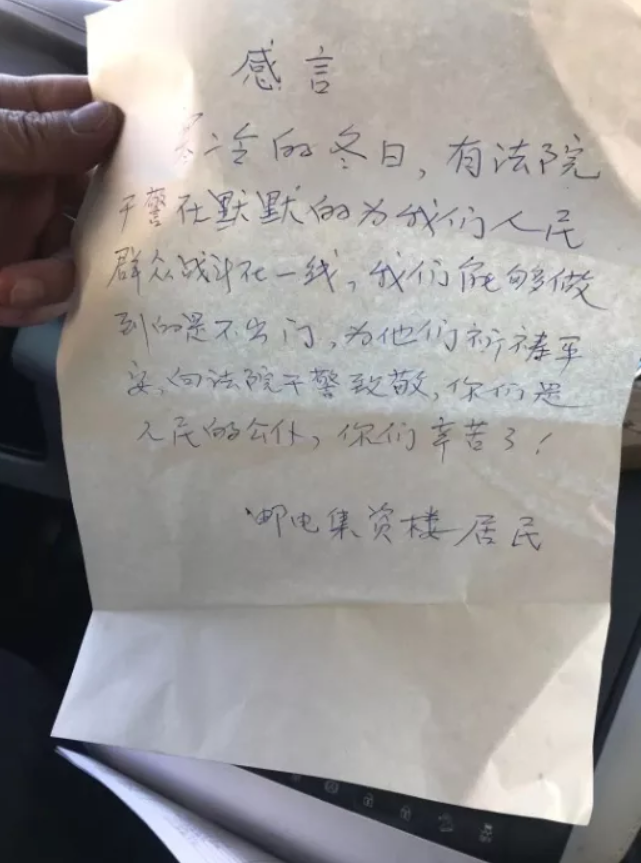 感言
寒冷的冬日，有法院
干警在默默的为我们人民
群众战斗在一线，我们能够做
到的是不出门，为他们祈祷平
安，向法院干警致敬，你们是
人民的公仆，你们辛苦了！
邮电集资楼居民